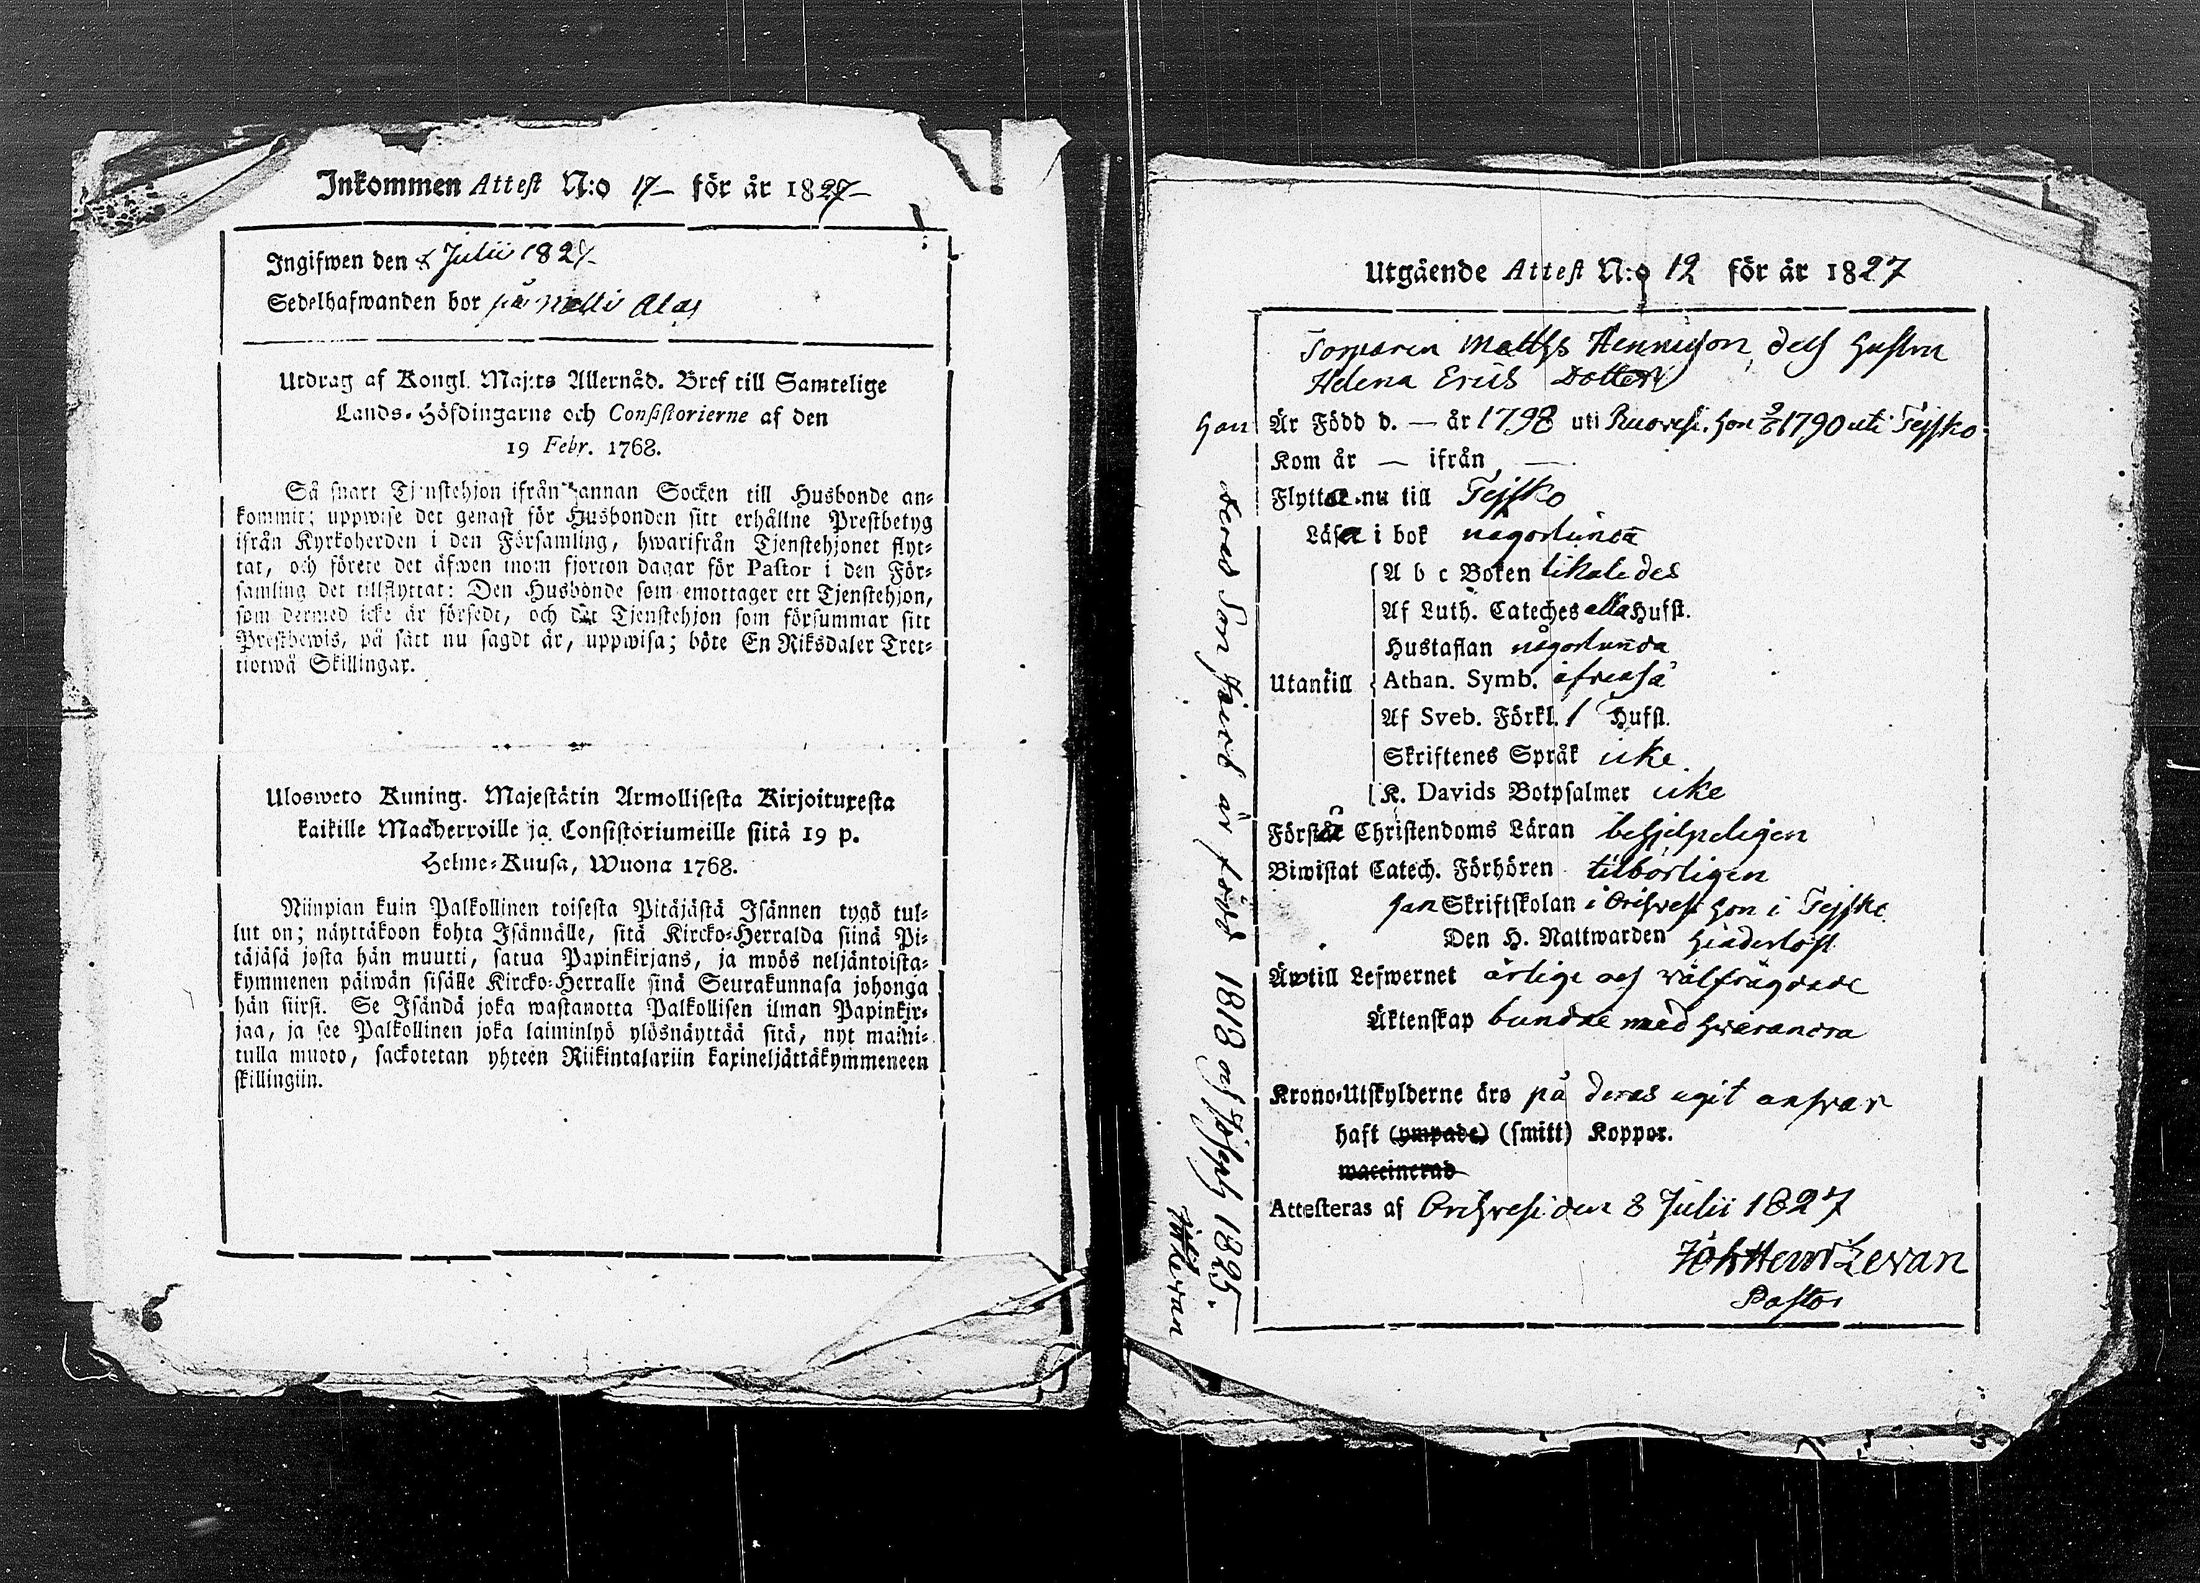 Inkommen Attest N:o 17 för år 1827
Ingifwen den 8 Julii 182
Sedelhafwanden bor på Matti Alas
Utdrag af Kongl. Maj:ts Allernåd. Bref till Samtelige
Lands-Höfdingarne och Consistorierne af den
19 Febr. 1768.
Så snart Tjenstehjon ifrån annan Socken till Husbonde an-
kommit; uppwise det genast för Husbonden sitt erhållne Prestbetyg
ifrån Kyrkoherden i den Församling, hwarifrån Tjenstehjonet flyt-
tat, och förete det äfwen inom fjorton dagar för Pastor i den För-
samling det tillflyttat: Den Husbonde som emottager ett Tjenstehjon,
som dermed icke är försedt, och det Tjenstehjon som försummar sitt
Prestbewis, på sätt nu sagdt är, uppwisa; böte En Riksdaler Tret-
tiotwå Skillingar.
Ulosweto Kuning. Majestätin Armollisesta Kirjoituxesta
kaikille Maaherroille ja Consistoriumeille siitä 19 p.
Helme-Kuusa, Wuona 1768.
Niinpian kuin Palkollinen toisesta Pitäjästä Isännen tygö tul-
lut on; näyttäkoon kohta Isännälle, sitä Kircko-Herralda siinä Pi-
täjäsä josta hän muutti, satua Papinkirjans, ja myös neljäntoista-
kymmenen päiwän sisälle Kircko-Herralle siinä Seurakunnasa johonga
hän siirsi. Se Isändä joka wastanotta Palkollisen ilman Papinkir-
jaa, ja see Palkollinen joka laiminlyö ylösnäyttää sitä, nyt maini-
tulla muoto, sackotetan yhteen Riikintalariin kaxineljättäkymmeneen
skillingiin.
Utgående Attest N:o 12 för år 1827
Torparen Matths Hennicson, dess hustru
Helena Erics Dotter
Han Är Född d. — år 1798 uti Ruovesi, hon 1790 uti Tejsko
Kom år — ifrån —
Flyttar nu till Tejsko
Läsa i bok någorlunda
A b c Boken likaledes
Af Luth. Cateches alla Hufst.
Hustaflan någorlunda
Utantill Athan. Symb. äfvenså
Af Sveb. Förkl. 1 Hufst.
Skriftenes Språk icke
K. Davids Botpsalmer icke
Förstå Christendoms Läran behjelpeligen
Biwistat Catech. Förhören tilbörligen
han Skriftskolan i Orihvesi hon i Tejsko
Den H. Nattwarden hinderlöst
Äro till Lefwernet ärlige och välfrägdade
Äktenskap bundne med hvarandra
Krono-Utskylderne äro på deras egit ansvar
haft (ympade) (smitt) Koppor.
waccinerad
Attesteras af Orihvesi den 8 Julii 1827
Joh Henr Levan
Pastor
deras Son Jacob är född 1818 och Joseph 1825.
Levan